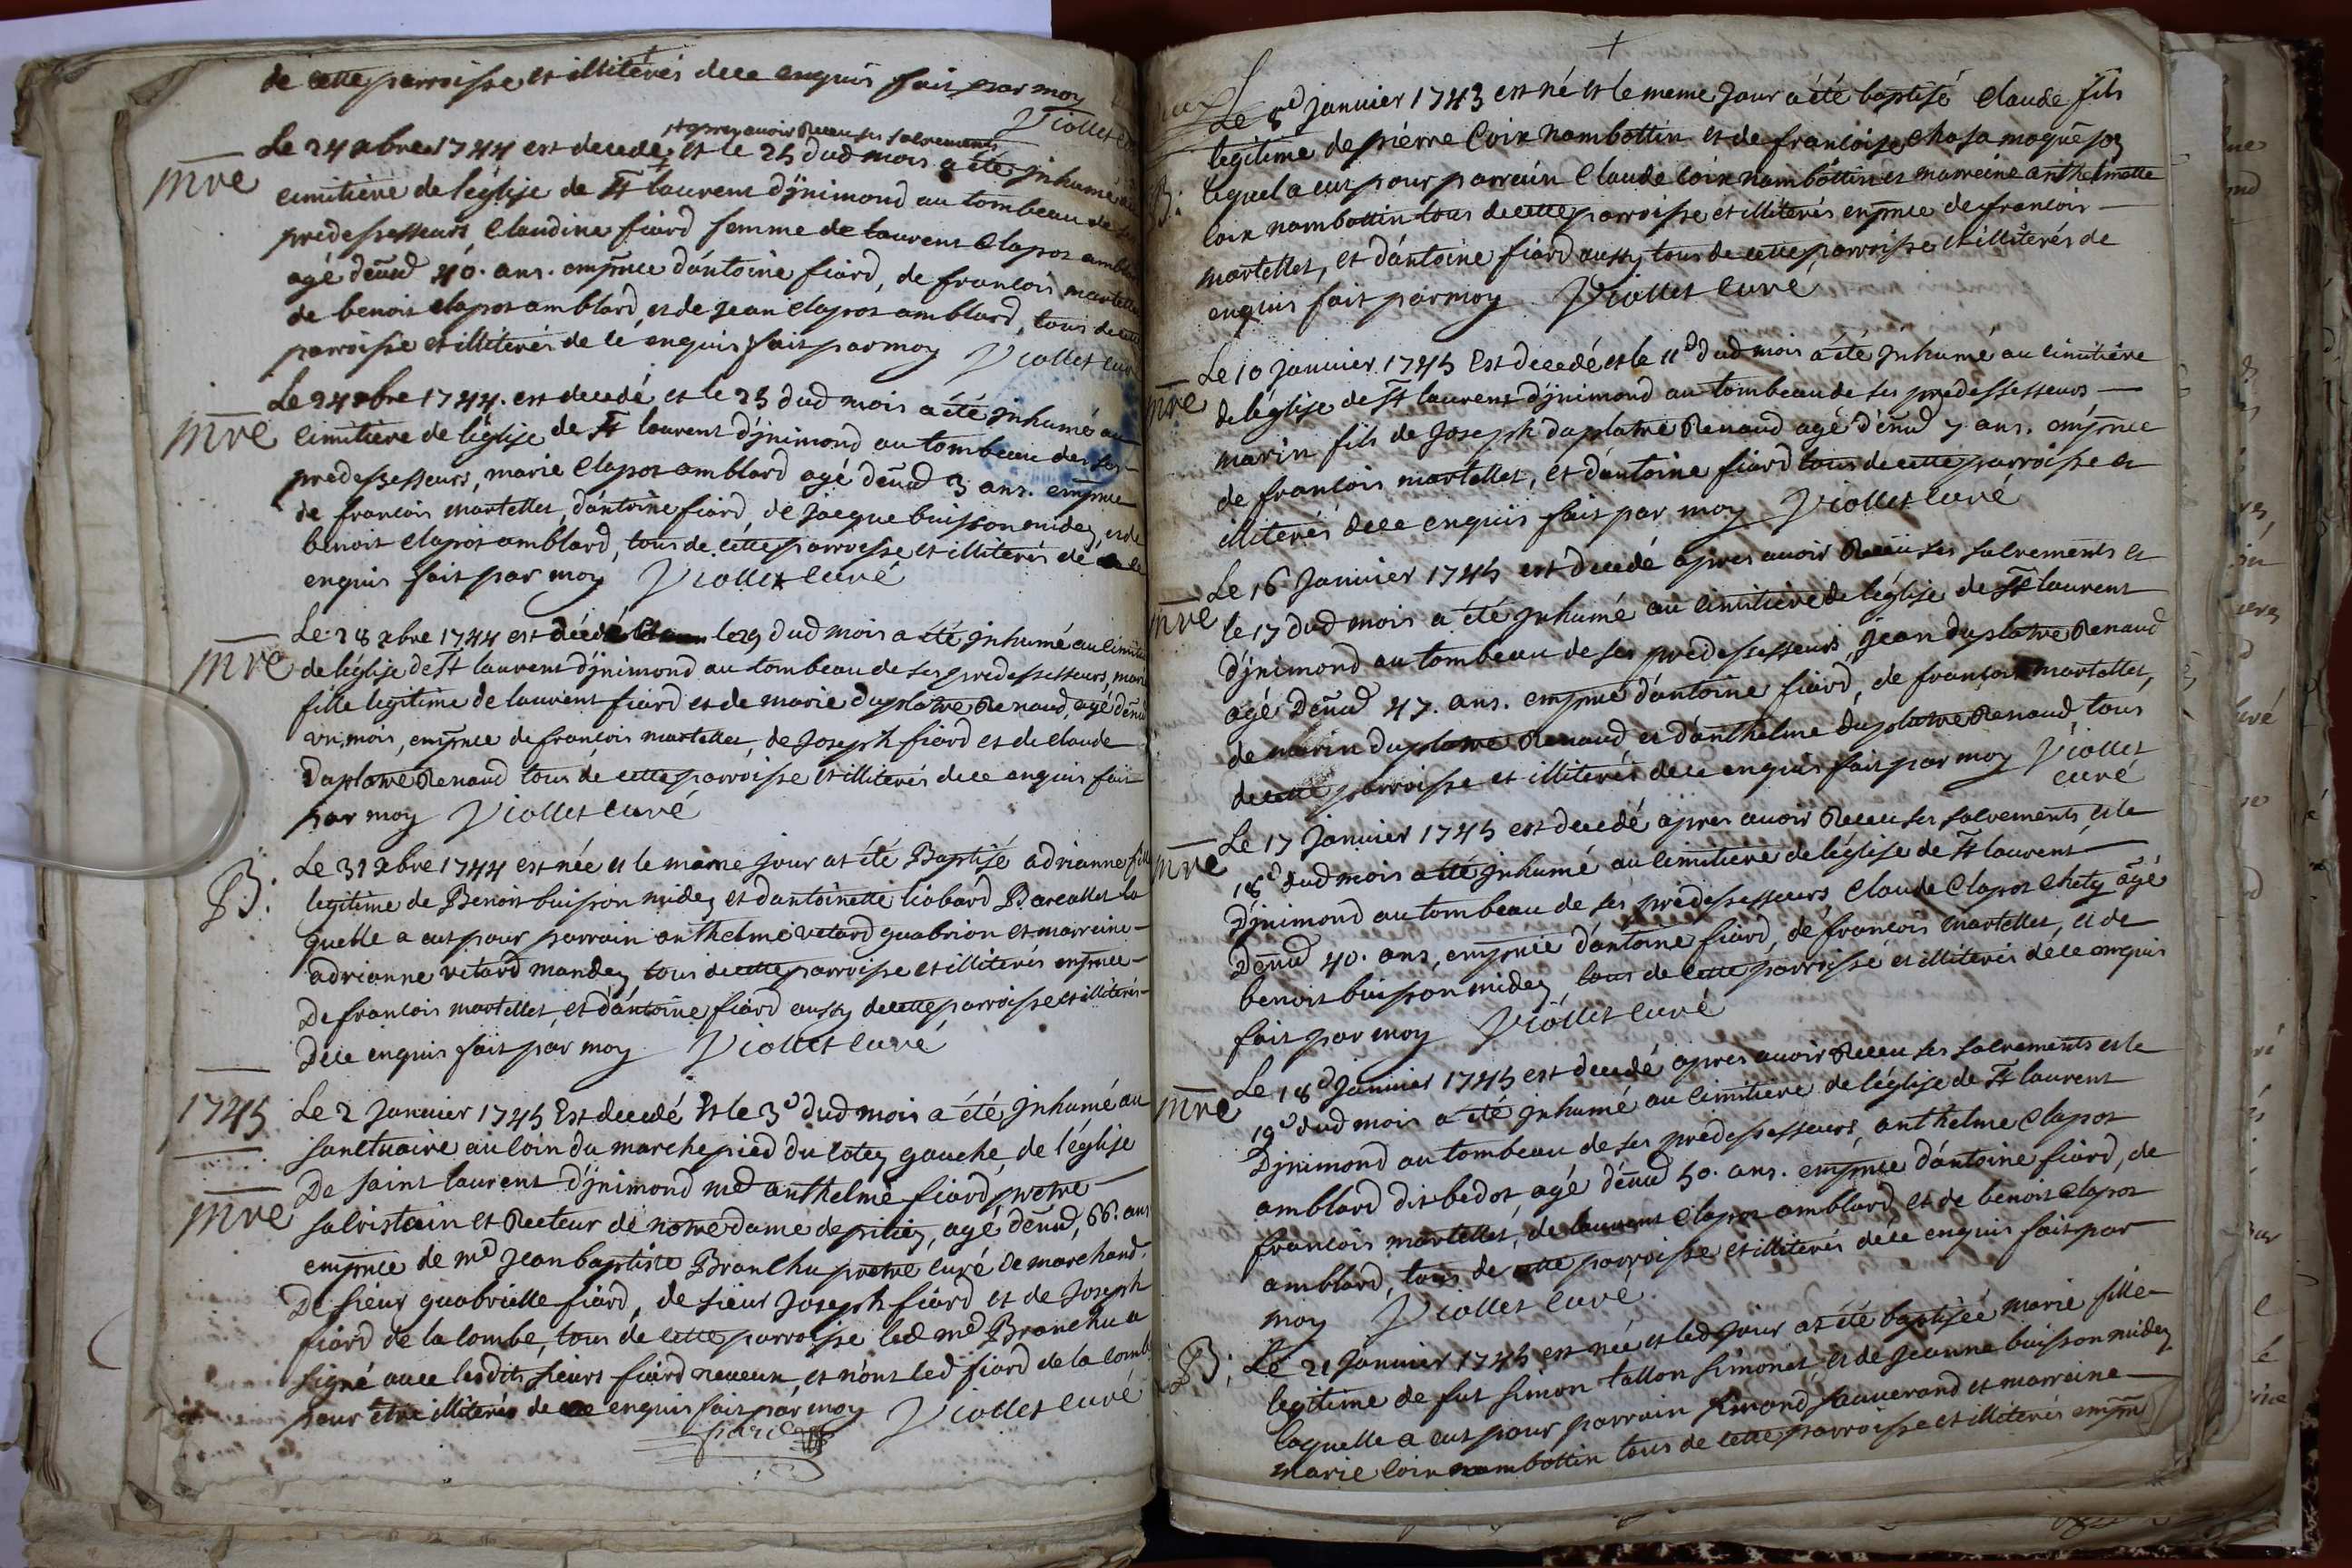 de cette parroisse et illiterés de ce enquis fait par moy
Viollet
+ apres avoir Receu ses sacrements
Le 24 xbre 1744 est decedé, et le 25 dud mois a été jnhumé
mre
cimitière de l'église de St laurent d'jnimond au tombeau de
predessesseurs Claudine fiard femme de laurent Clapot
agé d'envd 40. ans. empnce d'antoine fiard, de francois martellet
de benoit clapot amblard, et de jean clapot amblard, tous de cette
parroisse et illiterés de ce enquis fait par moy Viollet curé
Le 24 xbre 1744. est decedé et le 25 dud mois a été jnhumé au
mre
cimitiere de l'église de St laurent d'jnimond au tombeau de ses
predessesseurs, marie Clapot amblard agé d'envd 3 ans. empnce
de francois martellet, d'antoine fiard, de jacque buisson midey, et de
benoit clapot amblard, tous de cette parroisse et illiterés de ce
enquis fait par moy Viollet curé
Le 28 xbre 1744 est décédé le 29 dud mois a été jnhumé au
mre
de l'église de St laurent d'jnimond au tombeau de ses predessesseurs, marie
fille legitime de laurent fiard et de marie duplatre Renaud, agé
un mois, empnce de francois martellet, de Joseph fiard et de claude
duplatre Renaud tous de cette parroisse et illiterés de ce enquis fait
par moy Viollet curé
Le 31 xbre 1744 est née et le même jour at été Baptisé adrianne fille
B:
legitime de Benoit buisson midey et d'antoinette liobard Barcallet la
quelle a eut pour parrain anthelme vetard guabrion et marreine
adrianne vetard mandey tous de cette parroisse et illiterés empnce
de francois martellet, et d'antoine fiard aussy de cette parroisse et illiterés
de ce enquis fait par moy Viollet curé
1745
Le 2 Janvier 1745 Est decedé Et le 3d dud mois a été jnhumé au
sanctuaire au coin du marchepied du cotey gauche, de l'église
De saint laurent d'jnimond md anthelme fiard pretre
mre
sacristain et Recteur de notre dame de pitiez, agé d'envd, 66. ans
empnce de md Jean baptiste Branchu pretre curé de marchand,
De sieur guabrielle fiard, de sieur Joseph fiard et de Joseph
fiard de la combe, tous de cette parroisse led md Branchu a
signé avec lesdits sieurs fiard neveux, et nont led fiard de la combe
pour être illiterés de ce enquis fait par moy Viollet curé
fiard
+
Le 8d janvier 1743 est né et le meme jour a été baptisé Claude fils
legitime de pierre Coix nambottin et de francoise
B:
lequel a eut pour parrain Claude coix nambottin et marreine anthelmette
coix nambottin tous de cette parroisse et illiterés empnce de francois
martellet, et d'antoine fiard aussy tous de cette parroisse et illiterés de
enquis fait par moy Viollet curé
Le 10 janvier 1745 Est decedé et le 11d dud mois a été jnhumé au cimitière
mre
de l'église de St laurent d'jnimond au tombeau de ses predessesseurs
marin fils de Joseph duplatre Renaud agé d'envd 7 ans. empnce
de francois martellet, et d'antoine fiard tous de cette parroisse et
illiterés de ce enquis fait par moy Viollet curé
Le 16 Janvier 1745 est decedé apres avoir Receu ses sacrements et
mre
le 17 dud mois a été jnhumé au cimitiere de l'église de St laurent
d'jnimond au tombeau de ses predessesseurs, jean duplatre Renaud
agé d'envd 47. ans. empnce d'antoine fiard, de francois martellet,
de marin duplatre Renaud, et d'anthelme duplatre Renaud, tous
de cette parroisse et illiterés de ce enquis fait par moy Viollet
curé
Le 17 Janvier 1745 est decedé apres avoir Receu ses sacrements, et le
mre
18d dud mois a été jnhumé au cimitiere de l'église de St laurent
D'jnimond au tombeau de ses predessesseurs Claude Clapot Chety agé
D'envd 40. ans, empnce d'antoine fiard, de francois martellet, et de
benoit buisson midey tous de cette parroisse et illiterés de ce enquis
fait par moy Viollet curé
Le 18d Janvier 1745 est decedé apres avoir Receu ses sacrements et le
mre
19d dud mois a été jnhumé au cimitiere de l'église de St laurent
Djnimond au tombeau de ses predessesseurs, anthelme clapot
amblard dit bedot agé d'envd 50. ans. empnce d'antoine fiard, de
francois martellet, de laurent clapot amblard, et de benoit clapot
amblard, tous de cette parroisse et illiterés de ce enquis fait par
moy Viollet curé
B:
Le 21 Janvier 1745 est née et led jour at été baptisée marie fille
legitime de fut simon tallon simonet, et de jeanne buisson midey
laquelle a eut pour parrain simond sauverand et marreine
marie coix nambottin tous de cette parroisse et illiterés empn